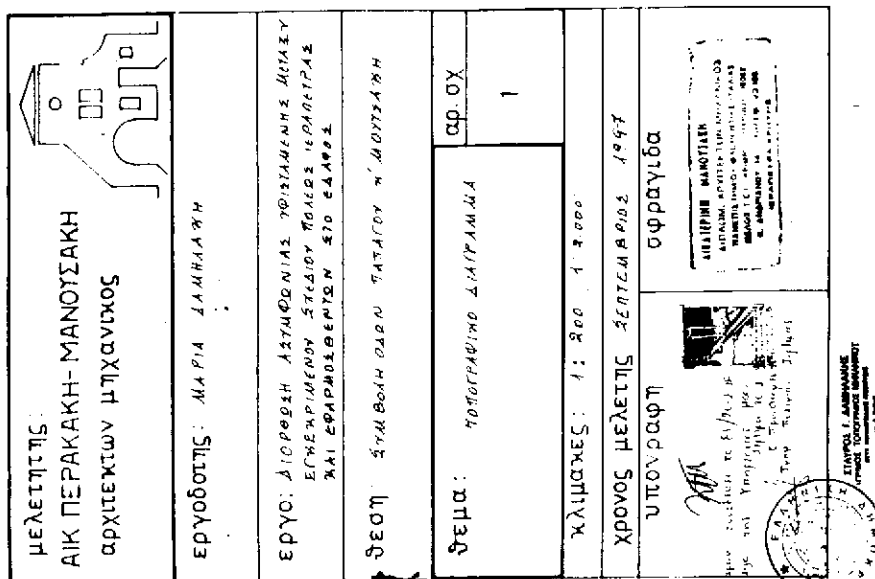 μελετητης:
ΑΙΚ ΠΕΡΑΚΑΚΗ-ΜΑΝΟΥΣΑΚΗ
αρχιτεκτων μηχανικος
εργοδοτης: ΜΑΡΙΑ ΔΑΜΗΛΑΚΗ
εργο: ΔΙΟΡΘΩΣΗ ΑΣΥΜΦΩΝΙΑΣ ΥΦΙΣΤΑΜΕΝΗΣ ΜΕΤΑΞΥ
ΕΓΚΕΚΡΙΜΕΝΟΥ ΣΧΕΔΙΟΥ ΠΟΛΕΩΣ ΙΕΡΑΠΕΤΡΑΣ
ΚΑΙ ΕΦΑΡΜΟΣΘΕΝΤΩΝ ΣΤΟ ΕΔΑΦΟΣ
θεση: ΣΥΜΒΟΛΗ ΟΔΩΝ ΠΑΠΑΓΟΥ Κ' ΜΟΥΤΣΑΚΗ
θεμα:
ΤΟΠΟΓΡΑΦΙΚΟ ΔΙΑΓΡΑΜΜΑ
αρ. σχ
1
κλιμακες: 1: 200 1: 2.000
χρονος μελετης ΣΕΠΤΕΜΒΡΙΟΣ 1997
υπογραφη
σφραγιδα
ΑΙΚΑΤΕΡΙΝΗ ΜΑΝΟΥΣΑΚΗ
ΔΙΠΛΩΜ. ΑΡΧΙΤΕΚΤΩΝ ΜΗΧΑΝΙΚΟΣ
ΙΕΡΑΠΕΤΡΑ ΚΡΗΤΗΣ
ΣΤΑΥΡΟΣ Γ.
ΤΟΠΟΓΡΑΦΟΣ